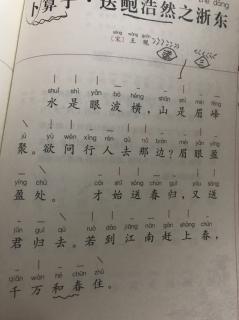 卜算子·送鲍浩然之浙东
sòng wáng guàn
[宋] 王 观
shuǐ shì yǎn bō héng shān shì méi fēng
水是眼波横,山是眉峰
jù yù wèn xíng rén qù nǎ biān méi yǎn yíng
聚。欲问行人去那边?眉眼盈
yíng chù cái shǐ sòng chūn guī yòu sòng
盈处。 才始送春归,又送
jūn guī qù ruò dào jiāng nán gǎn shàng chūn
君归去。若到江南赶上春,
qiān wàn hé chūn zhù
千万和春住。